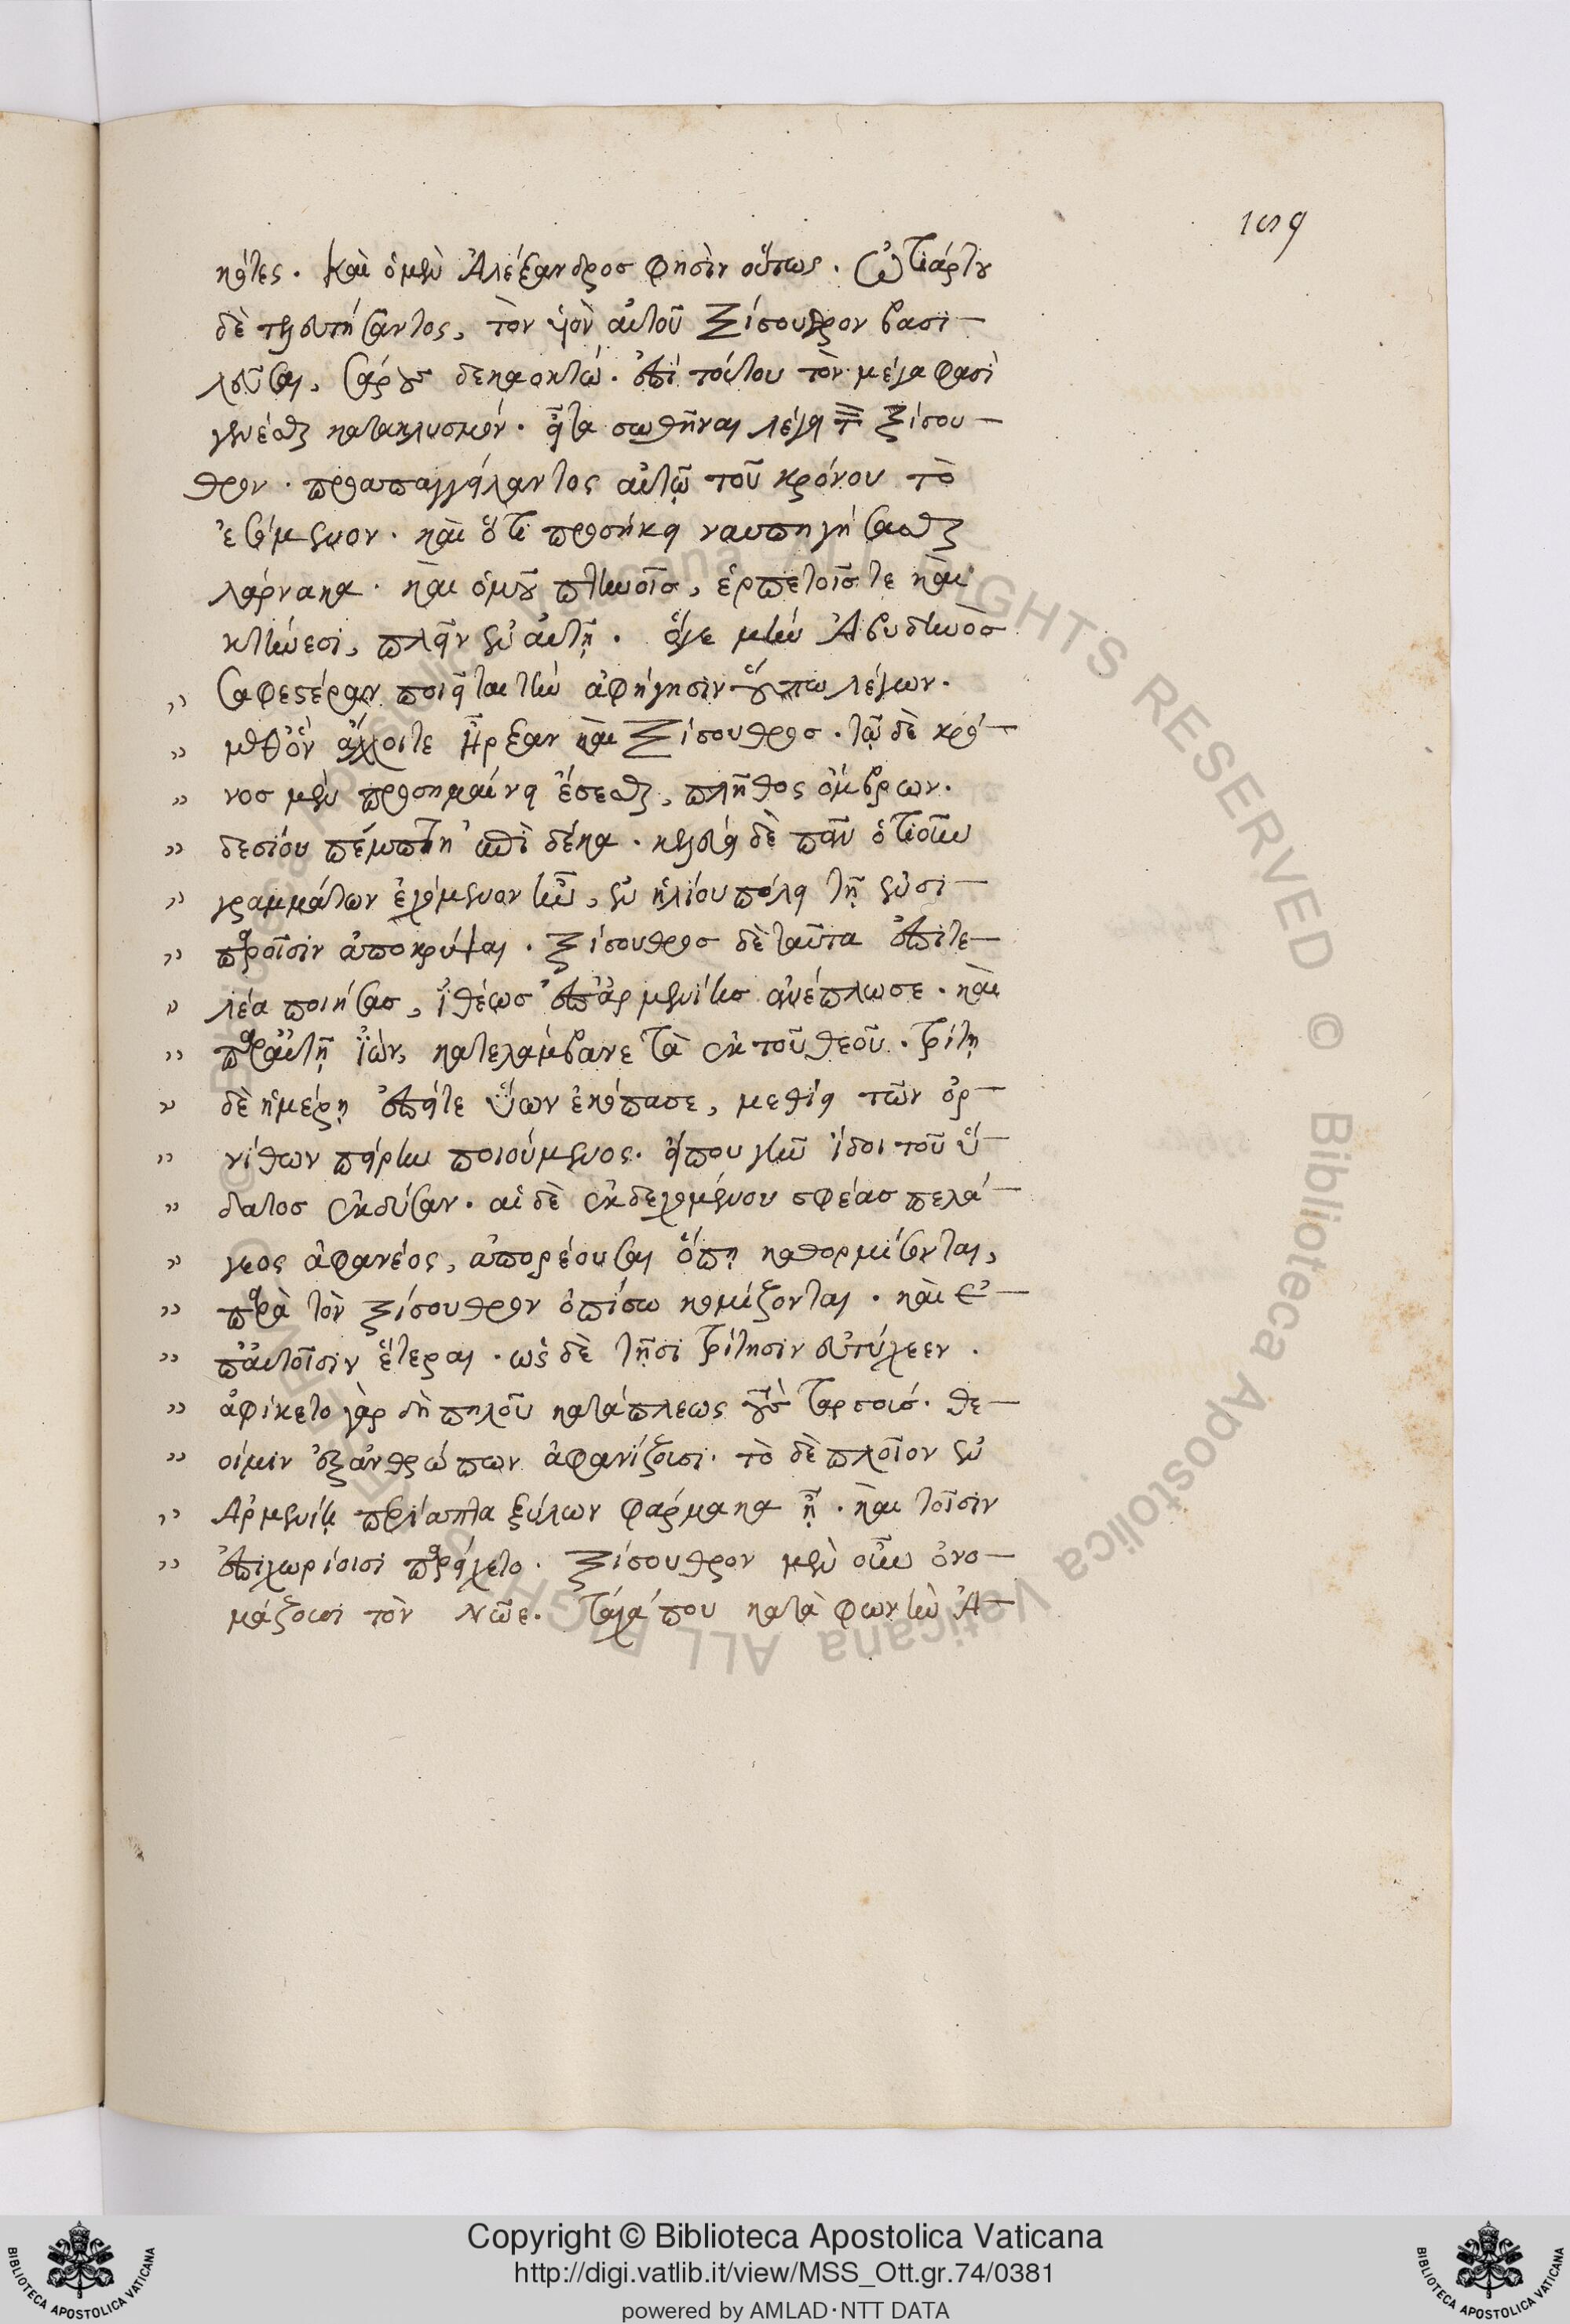 159
κότες. Καὶ ὁ μὲν Ἀλέξανδρος φησὶν οὕτως. Ὠτιάρτου
δὲ τελευτήσαντος, τὸν υἱὸν αὐτοῦ Ξίσουθρον βασι-
λεῦσαι, σάρους δεκαοκτώ. ἐπὶ τούτου τὸν μέγα φασὶ
γενέσθαι κατακλυσμόν. εἶτα σωθῆναι λέγει τὸν Ξίσου-
θρον. προαπαγγείλαντος αὐτῷ τοῦ κρόνου τὸ
ἐσόμενον. καὶ ὅτι προσήκει ναυπηγήσασθαι
λάρνακα. καὶ ὁμοῦ πτηνοῖς, ἑρπετοῖς τε καὶ
κτήνεσι, πλεῖν ἐν αὐτῇ. ὅγε μὴν Ἀβυδηνὸς
„ σαφεστέραν ποιεῖται τὴν ἀφήγησιν οὕτω λέγων.
„ μεθ' ὃν ἄλλοι τε ἦρξαν καὶ Ξίσουθρος. τῷ δὲ κρό-
„ νος μὲν προσημαίνει ἔσεσθαι, πλῆθος ὄμβρων.
„ δεσίου πέμπτῃ ἐπὶ δέκα. κελεύει δὲ πᾶν ὅτι οὖν
„ γραμμάτων ἐχόμενον ἦν, ἐν ἡλίου πόλει τῇ ἐν σι-
„ πφροῖσιν ἀποκρύψαι. Ξίσουθρος δὲ ταῦτα ἐπιτε-
„ λέα ποιήσας, ἰθέως ἐπ' ἀρμενίης ἀνέπλωσε. καὶ
„ παραυτῇ ἰών, κατελάμβανε τὰ ἐκ τοῦ θεοῦ. τρίτῃ
„ δὲ ἡμέρῃ ἐπεί τε ὕων ἐκόπασε, μεθίει τῶν ὀρ-
„ νίθων πείρην ποιούμενος. εἴπου γῆν ἴδοι τοῦ ὕ-
„ δατος ἐκδύσαν. αἱ δὲ ἐκδεχομένου σφέας πελά-
„ γεος ἀφανέος, ἀπορέουσαι ὅπῃ καθορμίσονται,
„ παρὰ τὸν Ξίσουθρον ὀπίσω κομίζονται. καὶ ἐ-
„ π' αὐτοῖσιν ἕτεραι. ὡς δὲ τῇσι τρίτησιν εὐτύχεεν.
„ ἀφίκετο γὰρ δὴ πηλοῦ κατάπλεως τοὺς ταρσούς. θε-
„ οί μιν ἐξ ἀνθρώπων ἀφανίζουσι. τὸ δὲ πλοῖον ἐν
„ Ἀρμενίῃ περίαπτα ξύλων φάρμακα ᾖ. καὶ τοῖσιν
„ ἐπιχωρίοισι παρείχετο. Ξίσουθρον μὲν οὖν ὀνο-
μάζουσι τὸν Νῶε. τάχα που κατὰ φωνὴν Ἀ-
Copyright © Biblioteca Apostolica Vaticana
http://digi.vatlib.it/view/MSS_Ott.gr.74/0381
powered by AMLAD·NTT DATA
BIBLIOTECA APOSTOLICA VATICANA
BIBLIOTECA APOSTOLICA VATICANA
© Biblioteca Apostolica Vaticana ALL RIGHTS RESERVED
© Biblioteca Apostolica Vaticana ALL RIGHTS RESERVED